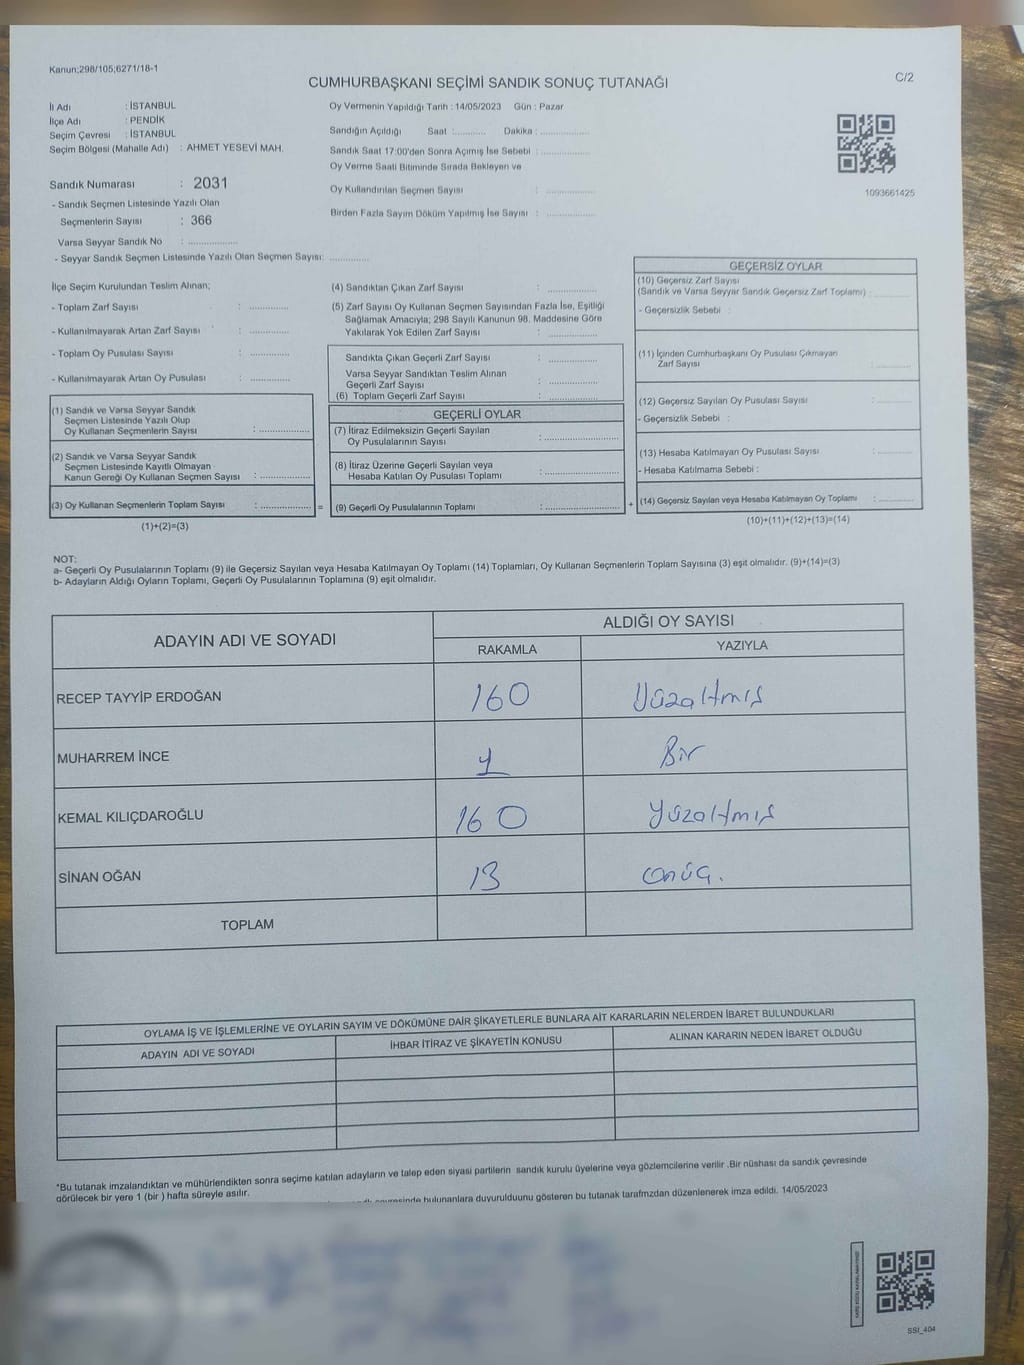 Kanun;298/105;6271/18-1
CUMHURBAŞKANI SEÇİMİ SANDIK SONUÇ TUTANAĞI
C/2
İl Adı : İSTANBUL
İlçe Adı : PENDİK
Seçim Çevresi : İSTANBUL
Seçim Bölgesi (Mahalle Adı) : AHMET YESEVİ MAH.
Sandık Numarası : 2031
- Sandık Seçmen Listesinde Yazılı Olan
Seçmenlerin Sayısı : 366
Varsa Seyyar Sandık No : ..................
- Seyyar Sandık Seçmen Listesinde Yazılı Olan Seçmen Sayısı: ..............
Oy Vermenin Yapıldığı Tarih : 14/05/2023 Gün : Pazar
Sandığın Açıldığı Saat :........... Dakika : .................
Sandık Saat 17:00'den Sonra Açımış İse Sebebi : .................
Oy Verme Saati Bitiminde Sırada Bekleyen ve
Oy Kullandırılan Seçmen Sayısı : .................
Birden Fazla Sayım Döküm Yapılmış İse Sayısı : .................
1093661425
İlçe Seçim Kurulundan Teslim Alınan;
- Toplam Zarf Sayısı : ..............
- Kullanılmayarak Artan Zarf Sayısı : ..............
- Toplam Oy Pusulası Sayısı : ..............
- Kullanılmayarak Artan Oy Pusulası : ..............
(1) Sandık ve Varsa Seyyar Sandık
Seçmen Listesinde Yazılı Olup
Oy Kullanan Seçmenlerin Sayısı : ..................
(2) Sandık ve Varsa Seyyar Sandık
Seçmen Listesinde Kayıtlı Olmayan
Kanun Gereği Oy Kullanan Seçmen Sayısı : ..................
(3) Oy Kullanan Seçmenlerin Toplam Sayısı : .................. =
(1)+(2)=(3)
(4) Sandıktan Çıkan Zarf Sayısı : .................
(5) Zarf Sayısı Oy Kullanan Seçmen Sayısından Fazla İse, Eşitliği
Sağlamak Amacıyla; 298 Sayılı Kanunun 98. Maddesine Göre
Yakılarak Yok Edilen Zarf Sayısı : .................
Sandıkta Çıkan Geçerli Zarf Sayısı : .................
Varsa Seyyar Sandıktan Teslim Alınan
Geçerli Zarf Sayısı : .................
(6) Toplam Geçerli Zarf Sayısı : .................
GEÇERLİ OYLAR
(7) İtiraz Edilmeksizin Geçerli Sayılan
Oy Pusulalarının Sayısı : ..........................
(8) İtiraz Üzerine Geçerli Sayılan veya
Hesaba Katılan Oy Pusulası Toplamı : ..........................
(9) Geçerli Oy Pusulalarının Toplamı : .......................... +
GEÇERSİZ OYLAR
(10) Geçersiz Zarf Sayısı
(Sandık ve Varsa Seyyar Sandık Geçersiz Zarf Toplamı) : ..............
- Geçersizlik Sebebi :
(11) İçinden Cumhurbaşkanı Oy Pusulası Çıkmayan
Zarf Sayısı : ..............
(12) Geçersiz Sayılan Oy Pusulası Sayısı : ..............
- Geçersizlik Sebebi :
(13) Hesaba Katılmayan Oy Pusulası Sayısı : ..............
- Hesaba Katılmama Sebebi :
(14) Geçersiz Sayılan veya Hesaba Katılmayan Oy Toplamı : ..............
(10)+(11)+(12)+(13)=(14)
NOT:
a- Geçerli Oy Pusulalarının Toplamı (9) ile Geçersiz Sayılan veya Hesaba Katılmayan Oy Toplamı (14) Toplamları, Oy Kullanan Seçmenlerin Toplam Sayısına (3) eşit olmalıdır. (9)+(14)=(3)
b- Adayların Aldığı Oyların Toplamı, Geçerli Oy Pusulalarının Toplamına (9) eşit olmalıdır.
ADAYIN ADI VE SOYADI
ALDIĞI OY SAYISI
RAKAMLA YAZIYLA
RECEP TAYYİP ERDOĞAN 160 Yüzaltmış
MUHARREM İNCE 1 Bir
KEMAL KILIÇDAROĞLU 160 Yüzaltmış
SİNAN OĞAN 13 onüç.
TOPLAM
OYLAMA İŞ VE İŞLEMLERİNE VE OYLARIN SAYIM VE DÖKÜMÜNE DAİR ŞİKAYETLERLE BUNLARA AİT KARARLARIN NELERDEN İBARET BULUNDUKLARI
ADAYIN ADI VE SOYADI İHBAR İTİRAZ VE ŞİKAYETİN KONUSU ALINAN KARARIN NEDEN İBARET OLDUĞU
*Bu tutanak imzalandıktan ve mühürlendikten sonra seçime katılan adayların ve talep eden siyasi partilerin sandık kurulu üyelerine veya gözlemcilerine verilir .Bir nüshası da sandık çevresinde
görülecek bir yere 1 (bir ) hafta süreyle asılır.
bulunanlara duyurulduunu gösteren bu tutanak tarafmzdan düzenlenerek imza edildi. 14/05/2023
SSI_404